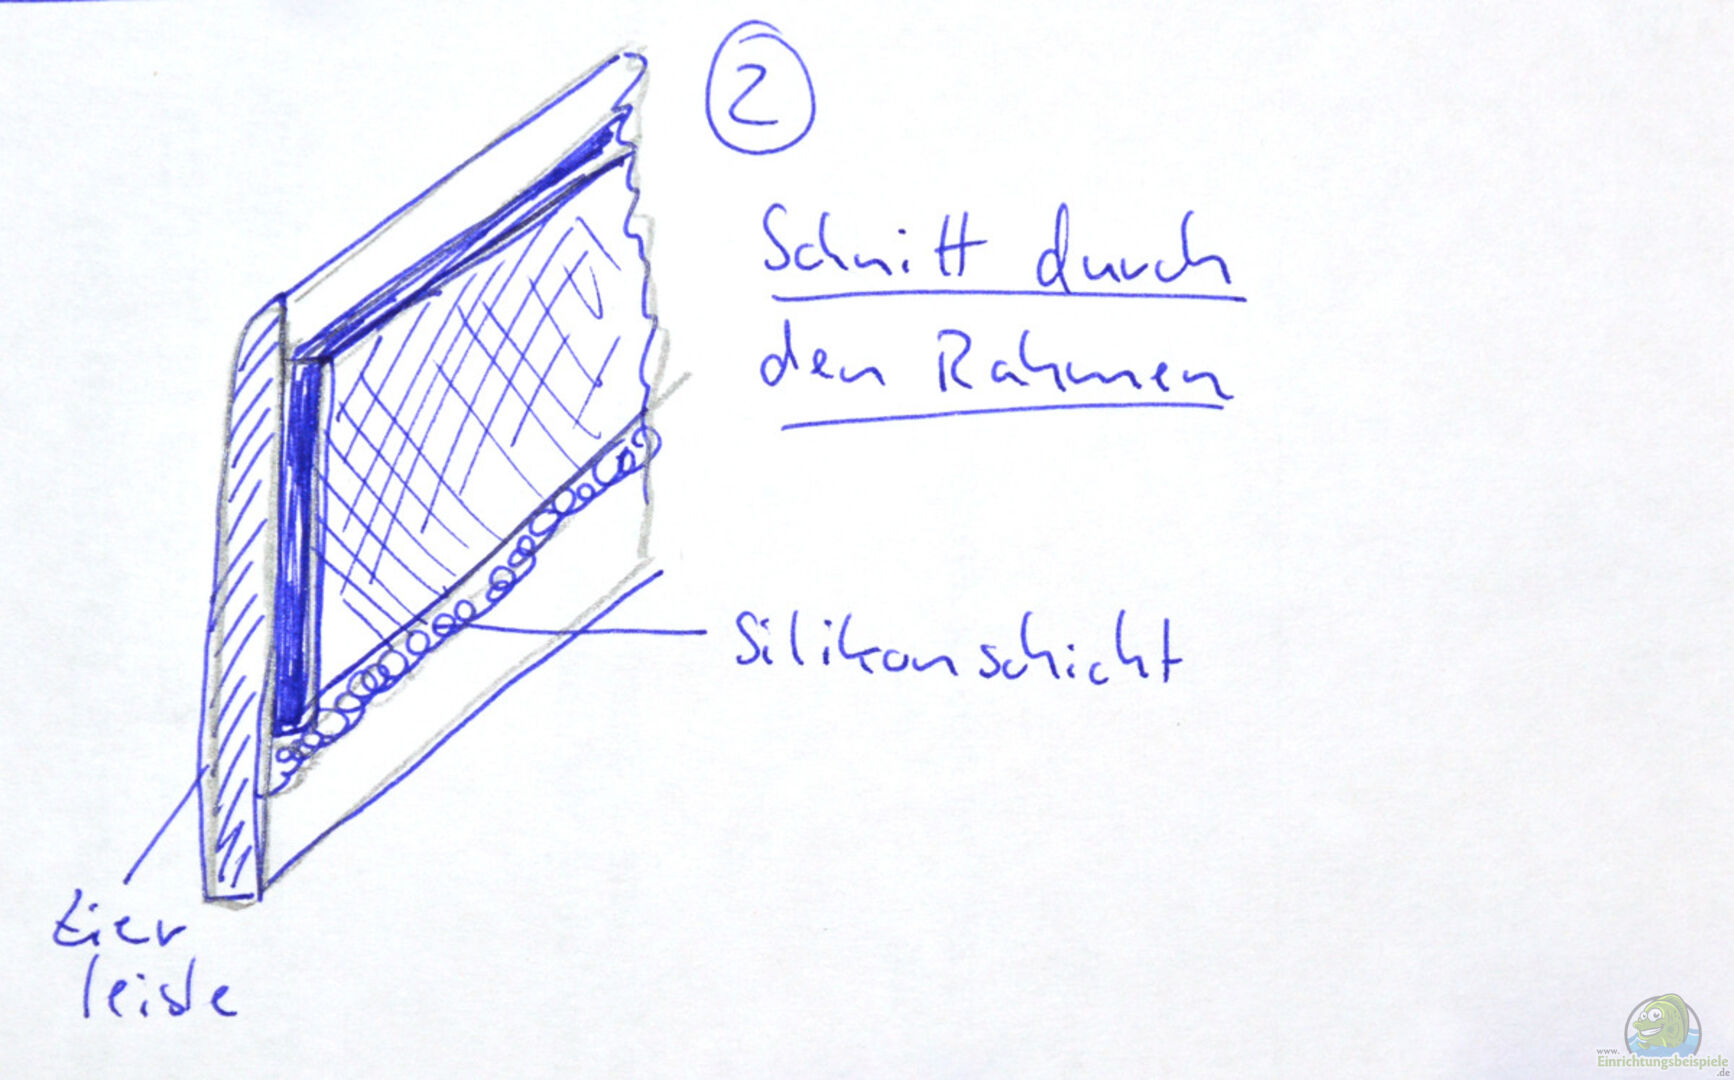 2
Schnitt durch
den Rahmen
Silikonschicht
Zier
leiste
www.
Einrichtungsbeispiele
.de